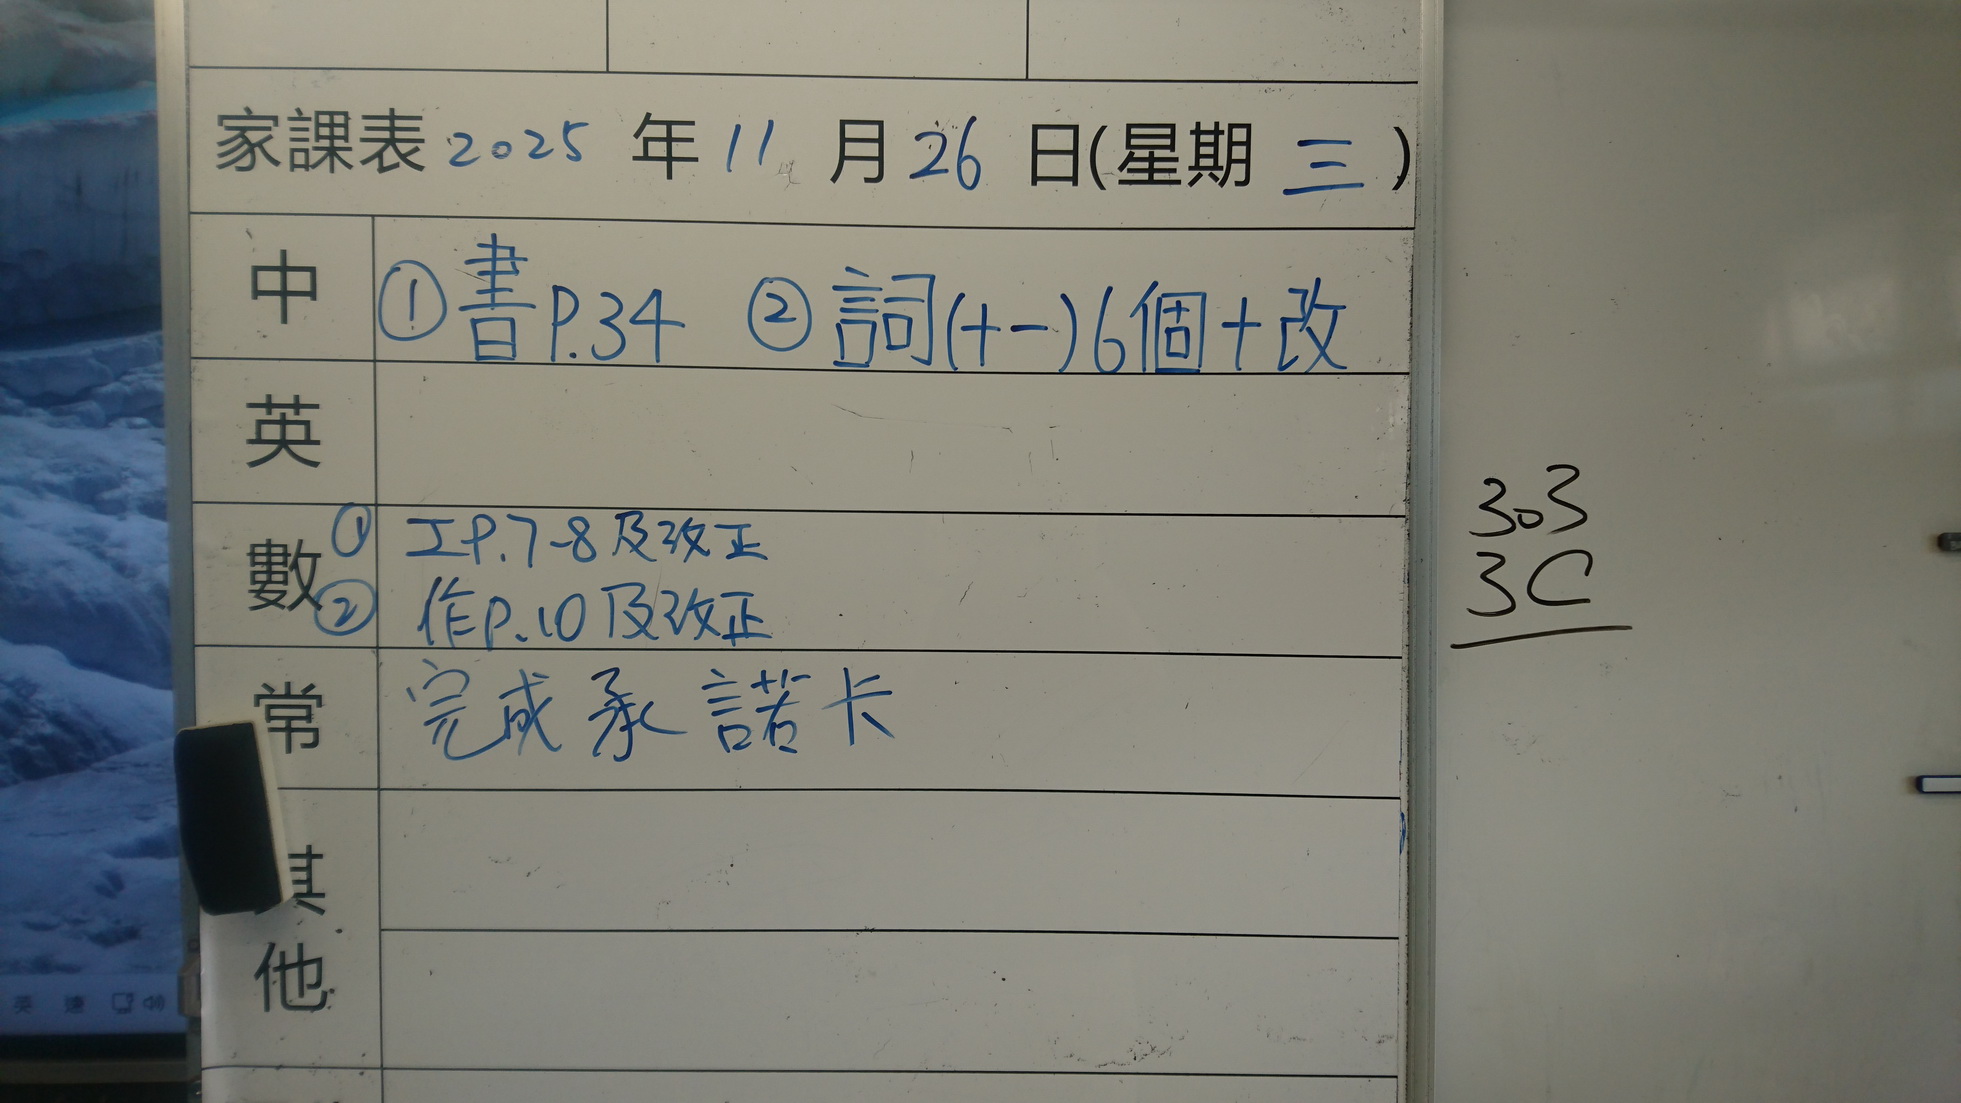 家課表 2025 年 11 月 26 日(星期 三 )
中 ①書P.34 ②詞(十一)6個+改
英
數 ① 工P.7-8及改正
② 作P.10及改正
常 完成承諾卡
其他
303
3C
英